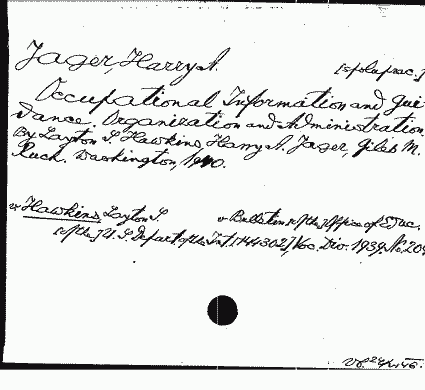 Jager, Harry A.
[spoluprac.]
Occupational Information and Gui-
dance. Organization and Administration.
By Layton S. Hawkins, Harry A. Jager, Giles M.
Ruch. Washington, 1940.
v Hawkins, Layton S.
v Bulletin of [the] Office of Educ.
of [the] U. S. Depart. of the Int. [144302], Voc. Div. 1939. No. 204